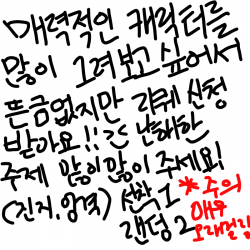 매력적인 캐릭터를
많이 그려보고 싶어서
뜬금없지만 리퀘 신청
받아요!! ≥≤ 난해한
주제 많이많이 주세요!
(진지.엄격) 선착 1
랜덤 2
*주의
매우
오래걸림